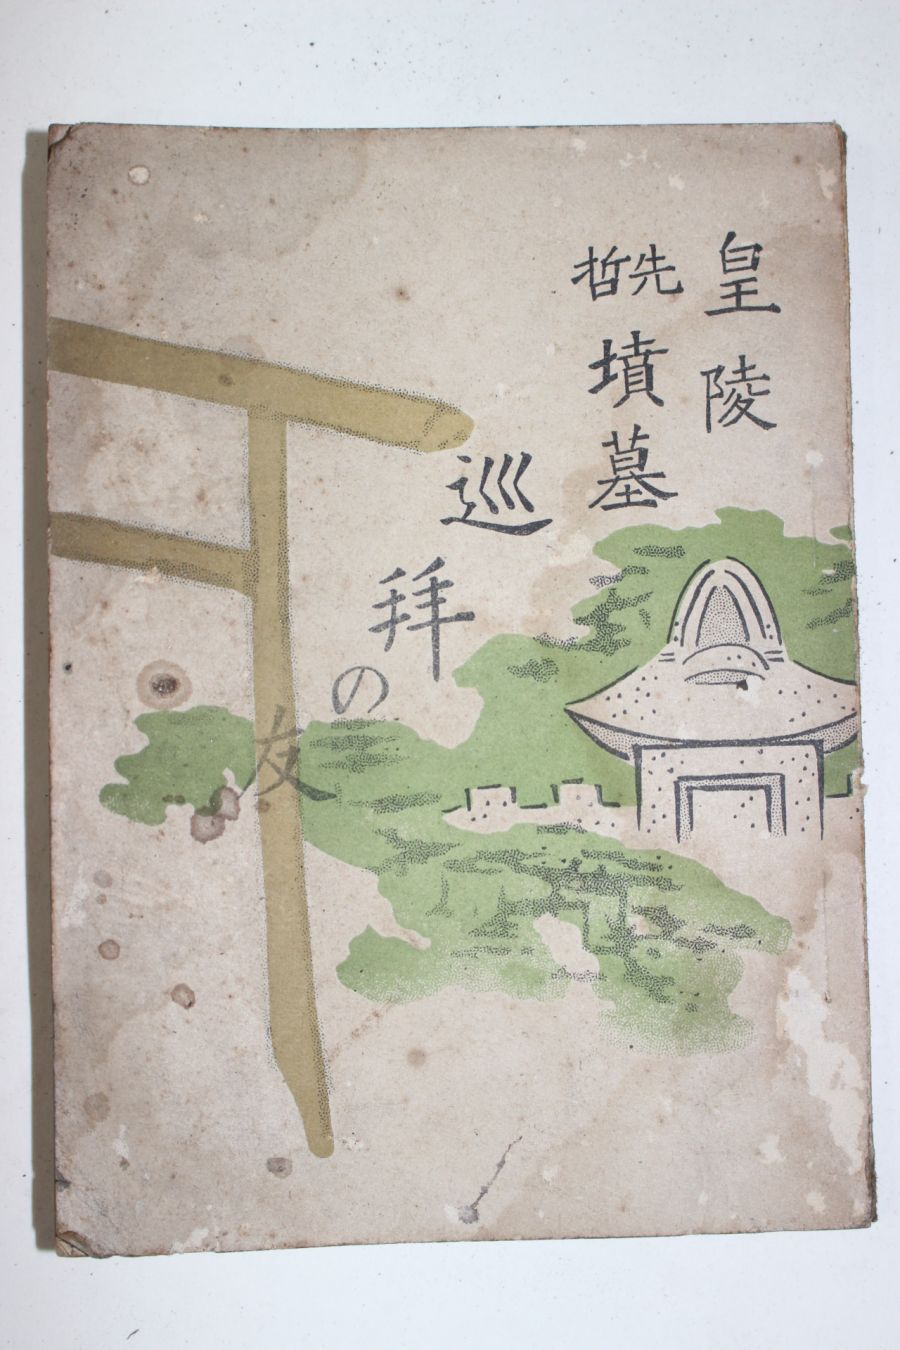 皇陵
先哲墳墓
巡拝の友